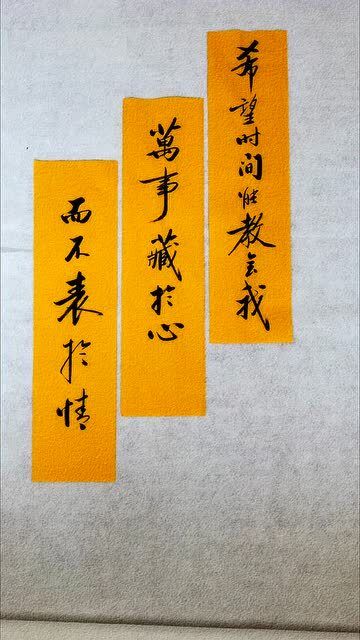 希望时间能教会我
萬事藏於心
而不表於情